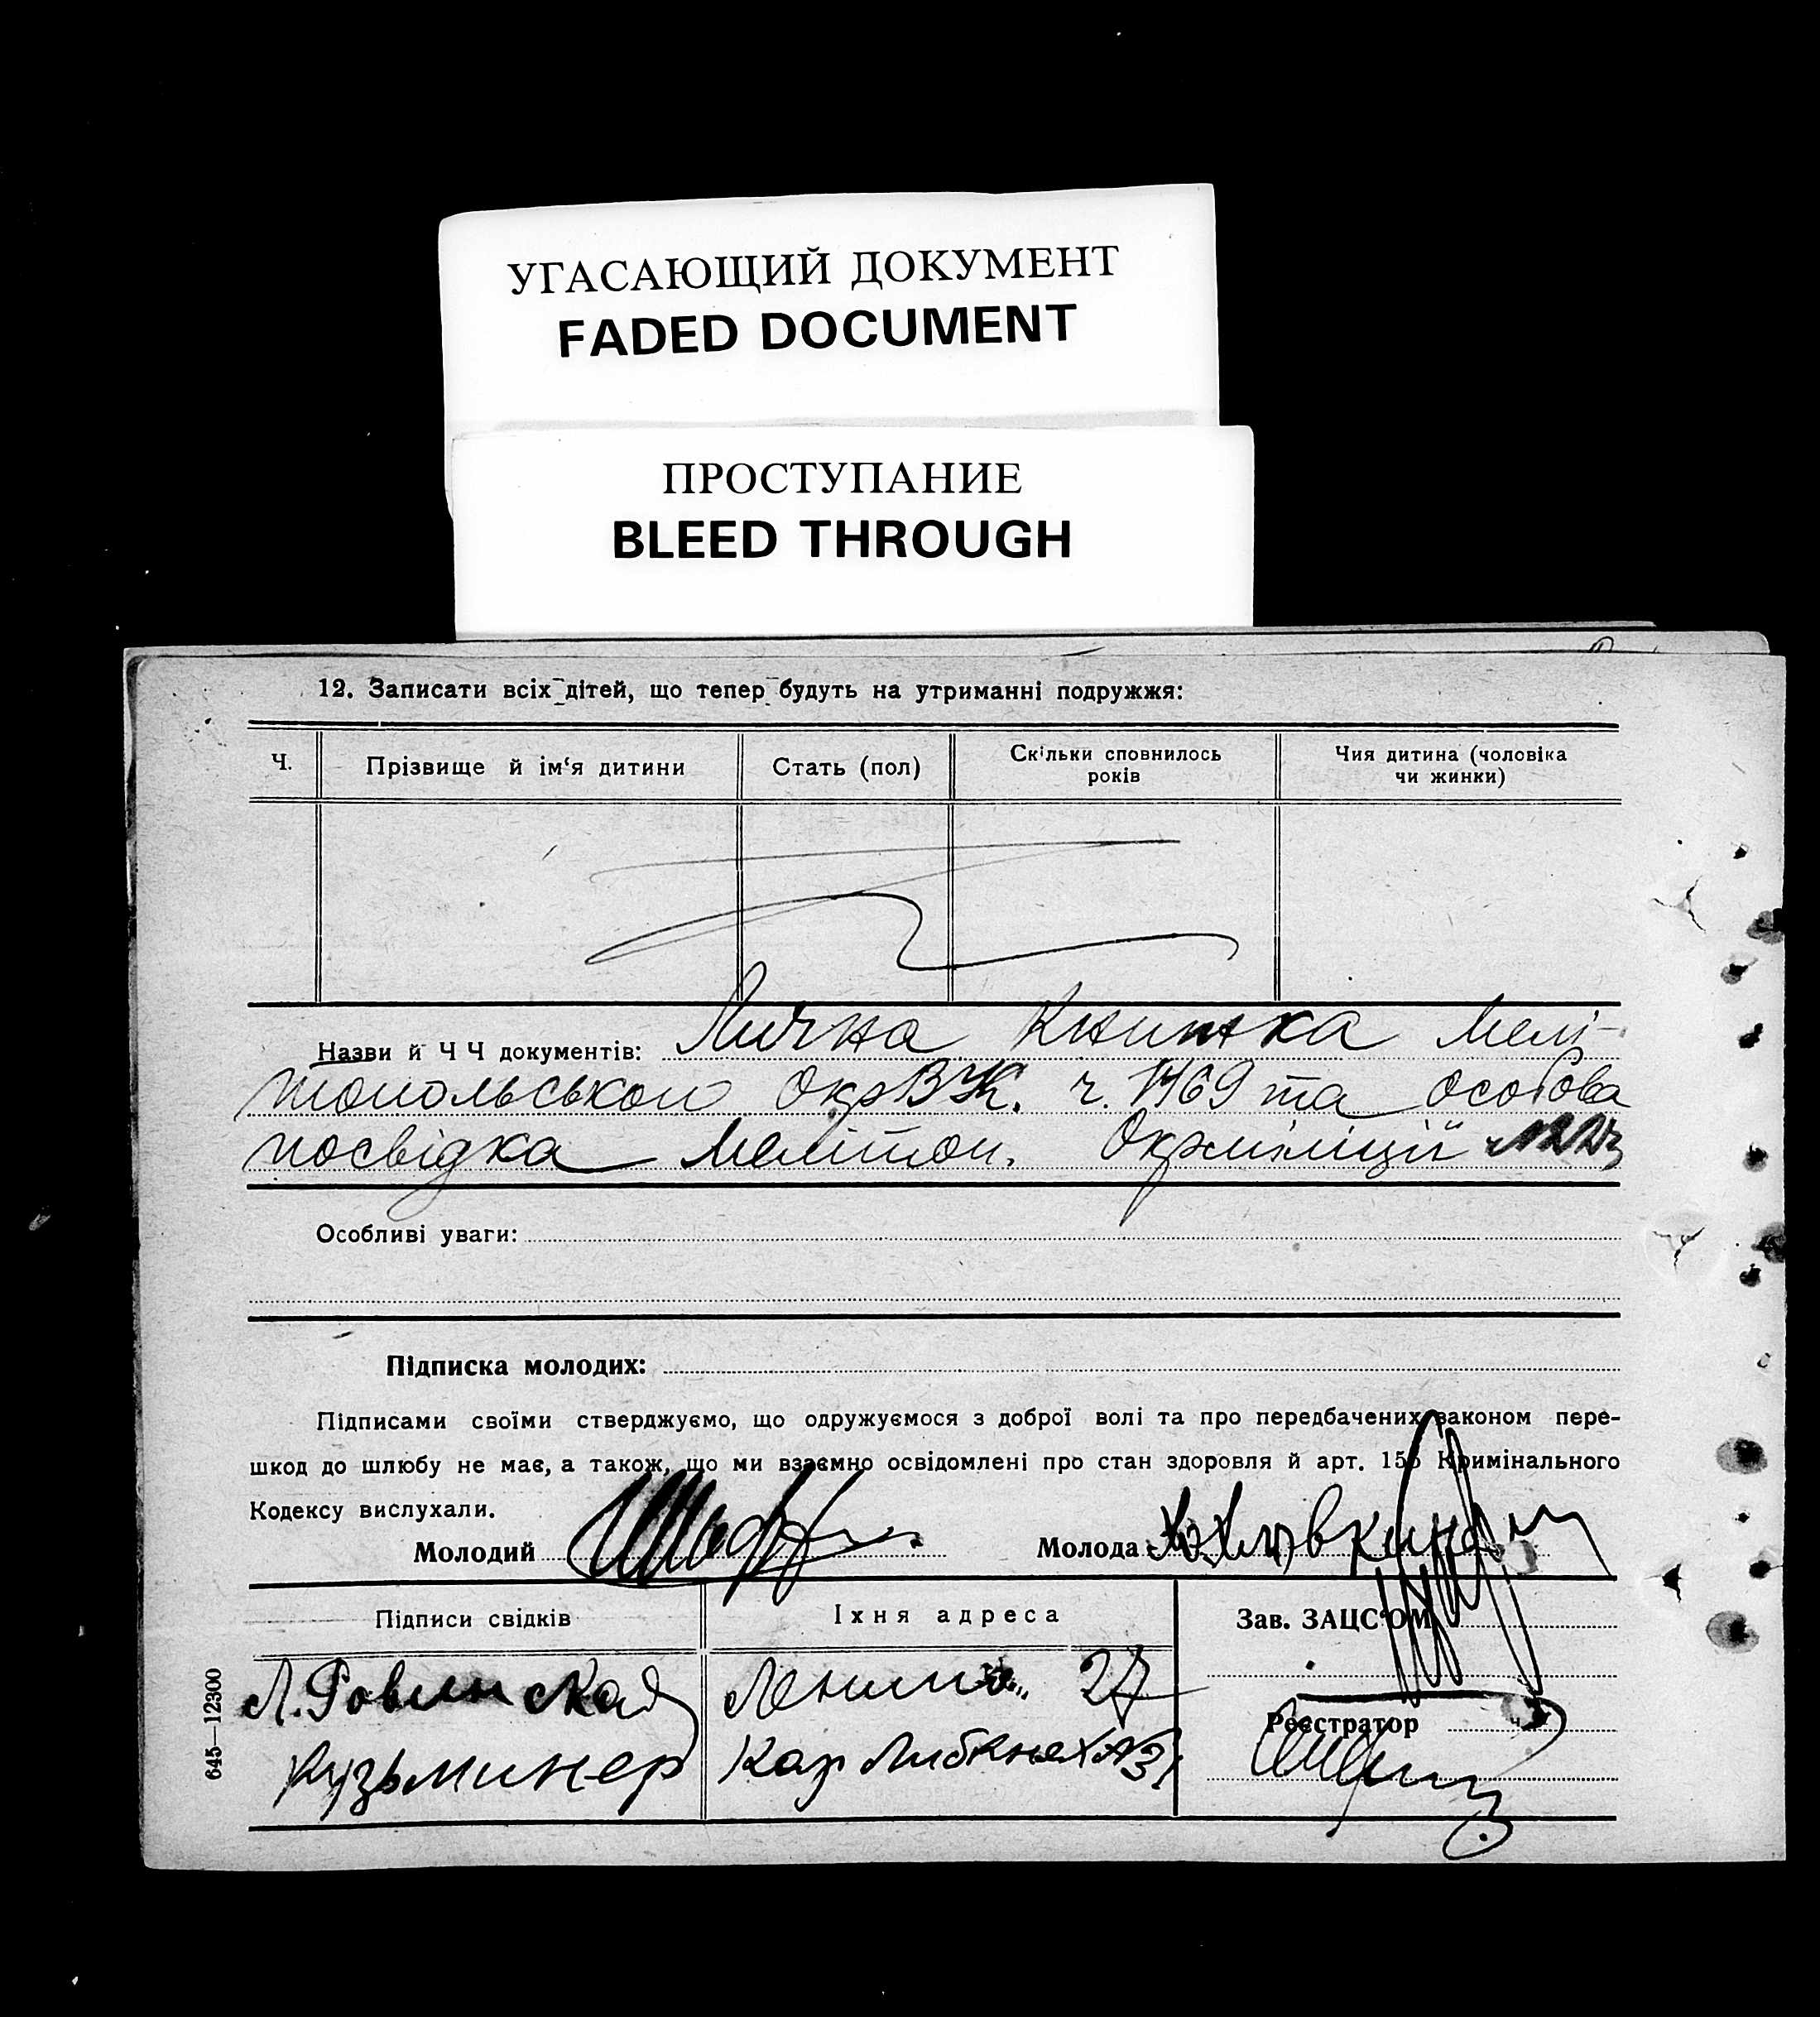 УГАСАЮЩИЙ ДОКУМЕНТ
FADED DOCUMENT
ПРОСТУПАНИЕ
BLEED THROUGH
12. Записати всіх дітей, що тепер будуть на утриманні подружжя:
Ч.
Прізвище й ім‘я дитини
Стать (пол)
Скільки сповнилось
років
Чия дитина (чоловіка
чи жинки)
Назви й Ч Ч документів: Лична Книжка Мелі-
топольського ОкрВК. ч. 1469 та особова
посвідка Мелітоп. Окрміліції
Особливі уваги:
Підписка молодих:
Підписами своїми стверджуємо, що одружуємося з доброї волі та про передбачених законом пере-
шкод до шлюбу не має, а також, що ми взаємно освідомлені про стан здоровля й арт. 155 Кримінального
Кодексу вислухали.
Молодий
Молода
Підписи свідків
Їхня адреса
Зав. ЗАЦС‘ОМ
Л. Ровинская
Ленина 27
Реєстратор
Кузьминер
Кар Либкнехт
645—12300